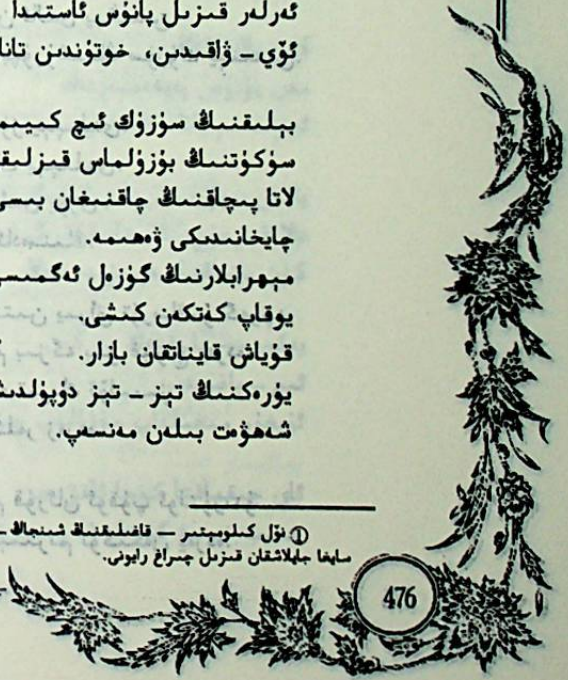 ئەرلەر قىزىل پانۇس ئاستىدا
ئۆي ـ ۋاقىدىن، خوتۇندىن تانا
بېلىقنىڭ سۈزۈك ئىچ كىيىم
سۈكۈتنىڭ بۇزۇلماس قىزلىق
لاتا پىچاقنىڭ چاقنىغان بىسى
چايخانىدىكى ۋەھىمە.
مېھرابلارنىڭ گۈزەل ئەگمىسى
يوقاپ كەتكەن كىشى.
قۇياش قاينىتقان بازار.
يۈرەكنىڭ تېز ـ تېز دۈپۈلدىش
شەھۋەت بىلەن مەنسەپ.
① نۆل كىلومېتىر — قاغىلىقنىڭ شىنجاڭ ـ
سايغا جايلاشقان قىزىل چىراغ رايونى.
476